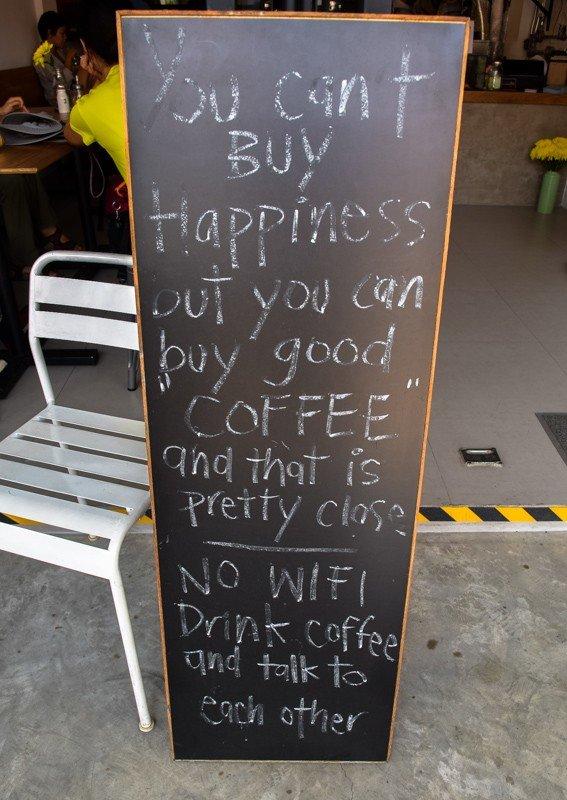 You can't
BUY
Happiness
but you can
buy good
"COFFEE"
and that is
pretty close
NO WIFI
Drink coffee
and talk to
each other